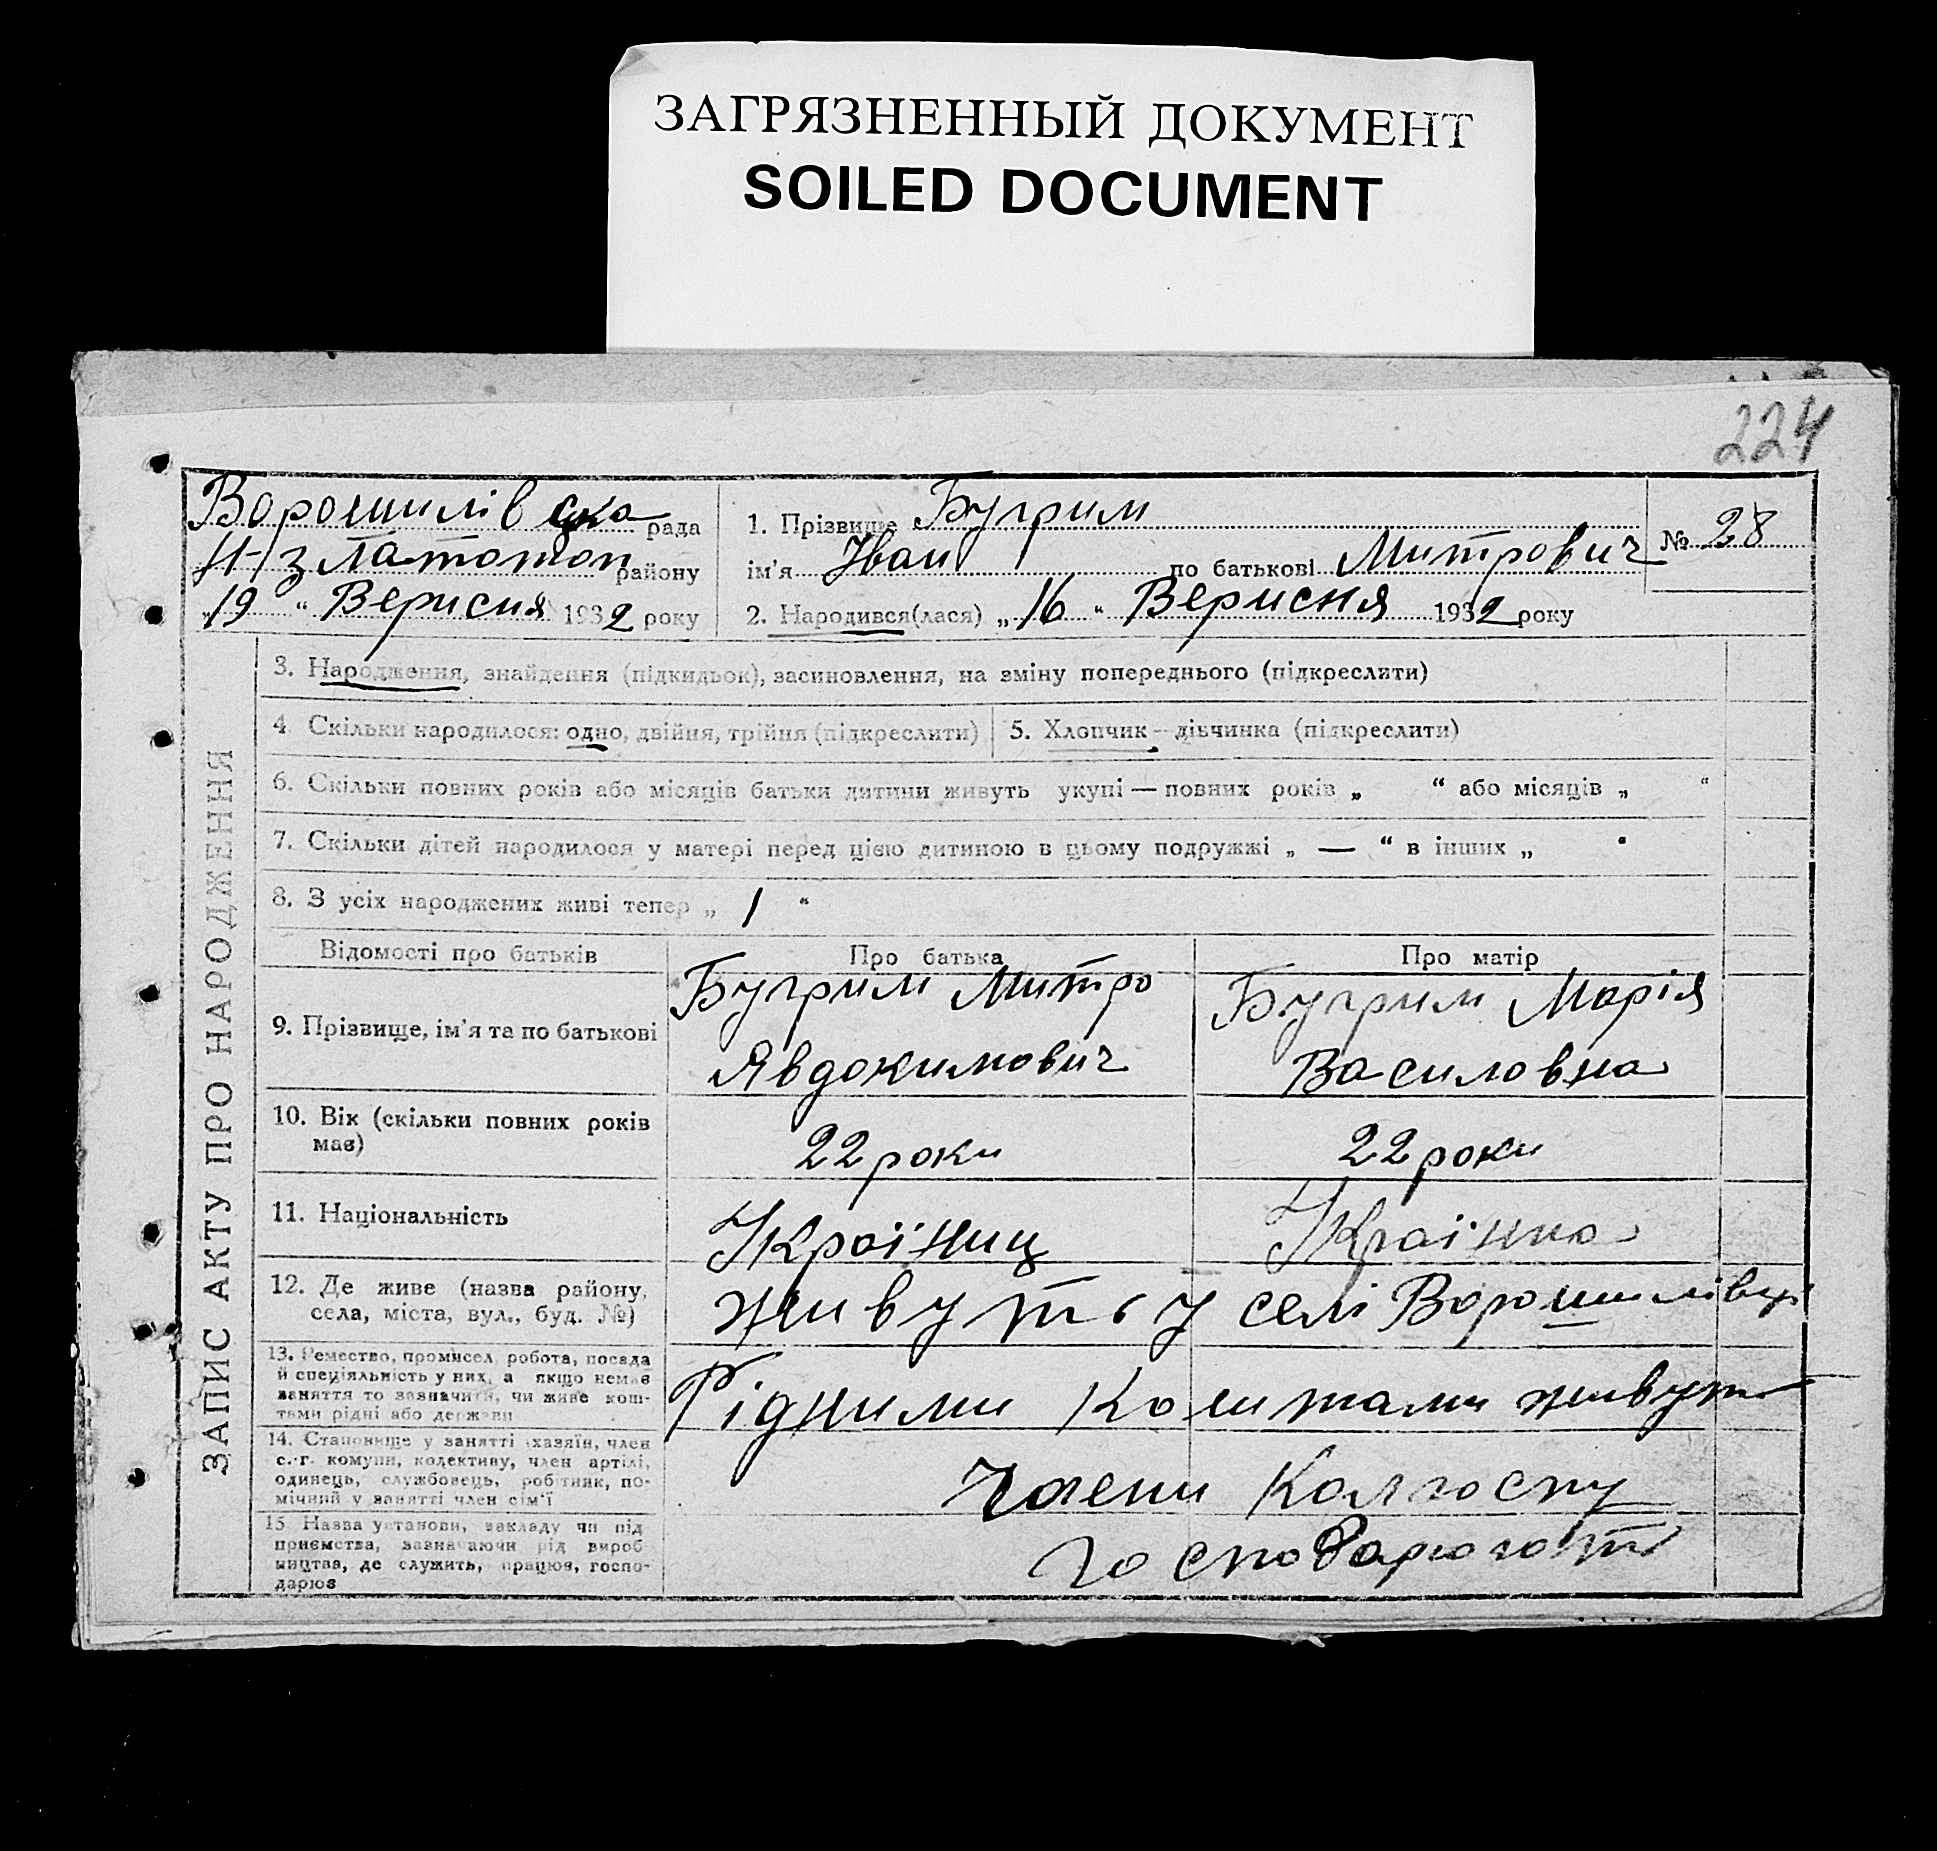 ЗАГРЯЗНЕННЫЙ ДОКУМЕНТ
SOILED DOCUMENT
224
ЗАПИС АКТУ ПРО НАРОДЖЕННЯ
Ворошилівська рада
Н-Златопол району
„19“ Верисня 1932 року
1. Прізвище Бугрим
ім'я Іван по батькові Митрович
№ 28
2. Народився(лася) „16“ Верисня 1932 року
3. Народження, знайдення (підкидьок), засиновлення, на зміну попереднього (підкреслити)
4. Скільки народилося: одно, двійня, трійня (підкреслити)
5. Хлопчик — дівчинка (підкреслити)
6. Скільки повних років або місяців батьки дитини живуть укупі — повних років „ “ або місяців „ “
7. Скільки дітей народилося у матері перед цією дитиною в цьому подружжі „ — “ в інших „ “
8. З усіх народжених живі тепер „ 1 “
Відомості про батьків
Про батька
Про матір
9. Прізвище, ім'я та по батькові
Бугрим Митро
Явдокимович
Бугрим Марія
Василовна
10. Вік (скільки повних років
має)
22 роки
22 роки
11. Національність
Україниц
Українка
12. Де живе (назва району,
села, міста, вул., буд. №)
живуть у селі Ворошилівці
13. Ремество, промисел, робота, посада
й спеціяльність у них, а якщо немає
заняття то зазначити, чи живе кош-
тами рідні або держави
Рідними Коштами живуть
14. Становище у занятті (хазяїн, член
с.-г. комуни, колективу, член артілі,
одинець, службовець, робітник, по-
мічний у занятті член сім'ї
Члени Колгоспу
15 Назва установи, закладу чи під
приємства, зазначаючи рід вироб
ництва, де служить, працює, госпо-
дарює
господарюють